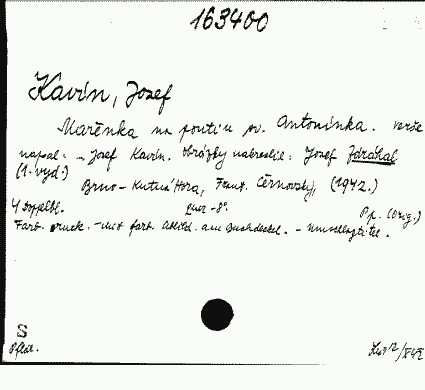 163400
Kavín, Josef
Mařenka na pouti u sv. Antonínka. verše
napsal: - Josef Kavín. Obrázky nakreslil: Josef Zdráhal
(1. vyd.)
Brno - Kutná Hora, Frant. Černovský, (1942.)
4 Doppelbl. quer - 8°. Pp. (Orig.)
Farb. Druck. - mit farb. Abbild. am Buchdeckel. - Umschlagtitel.
S
Pflax.